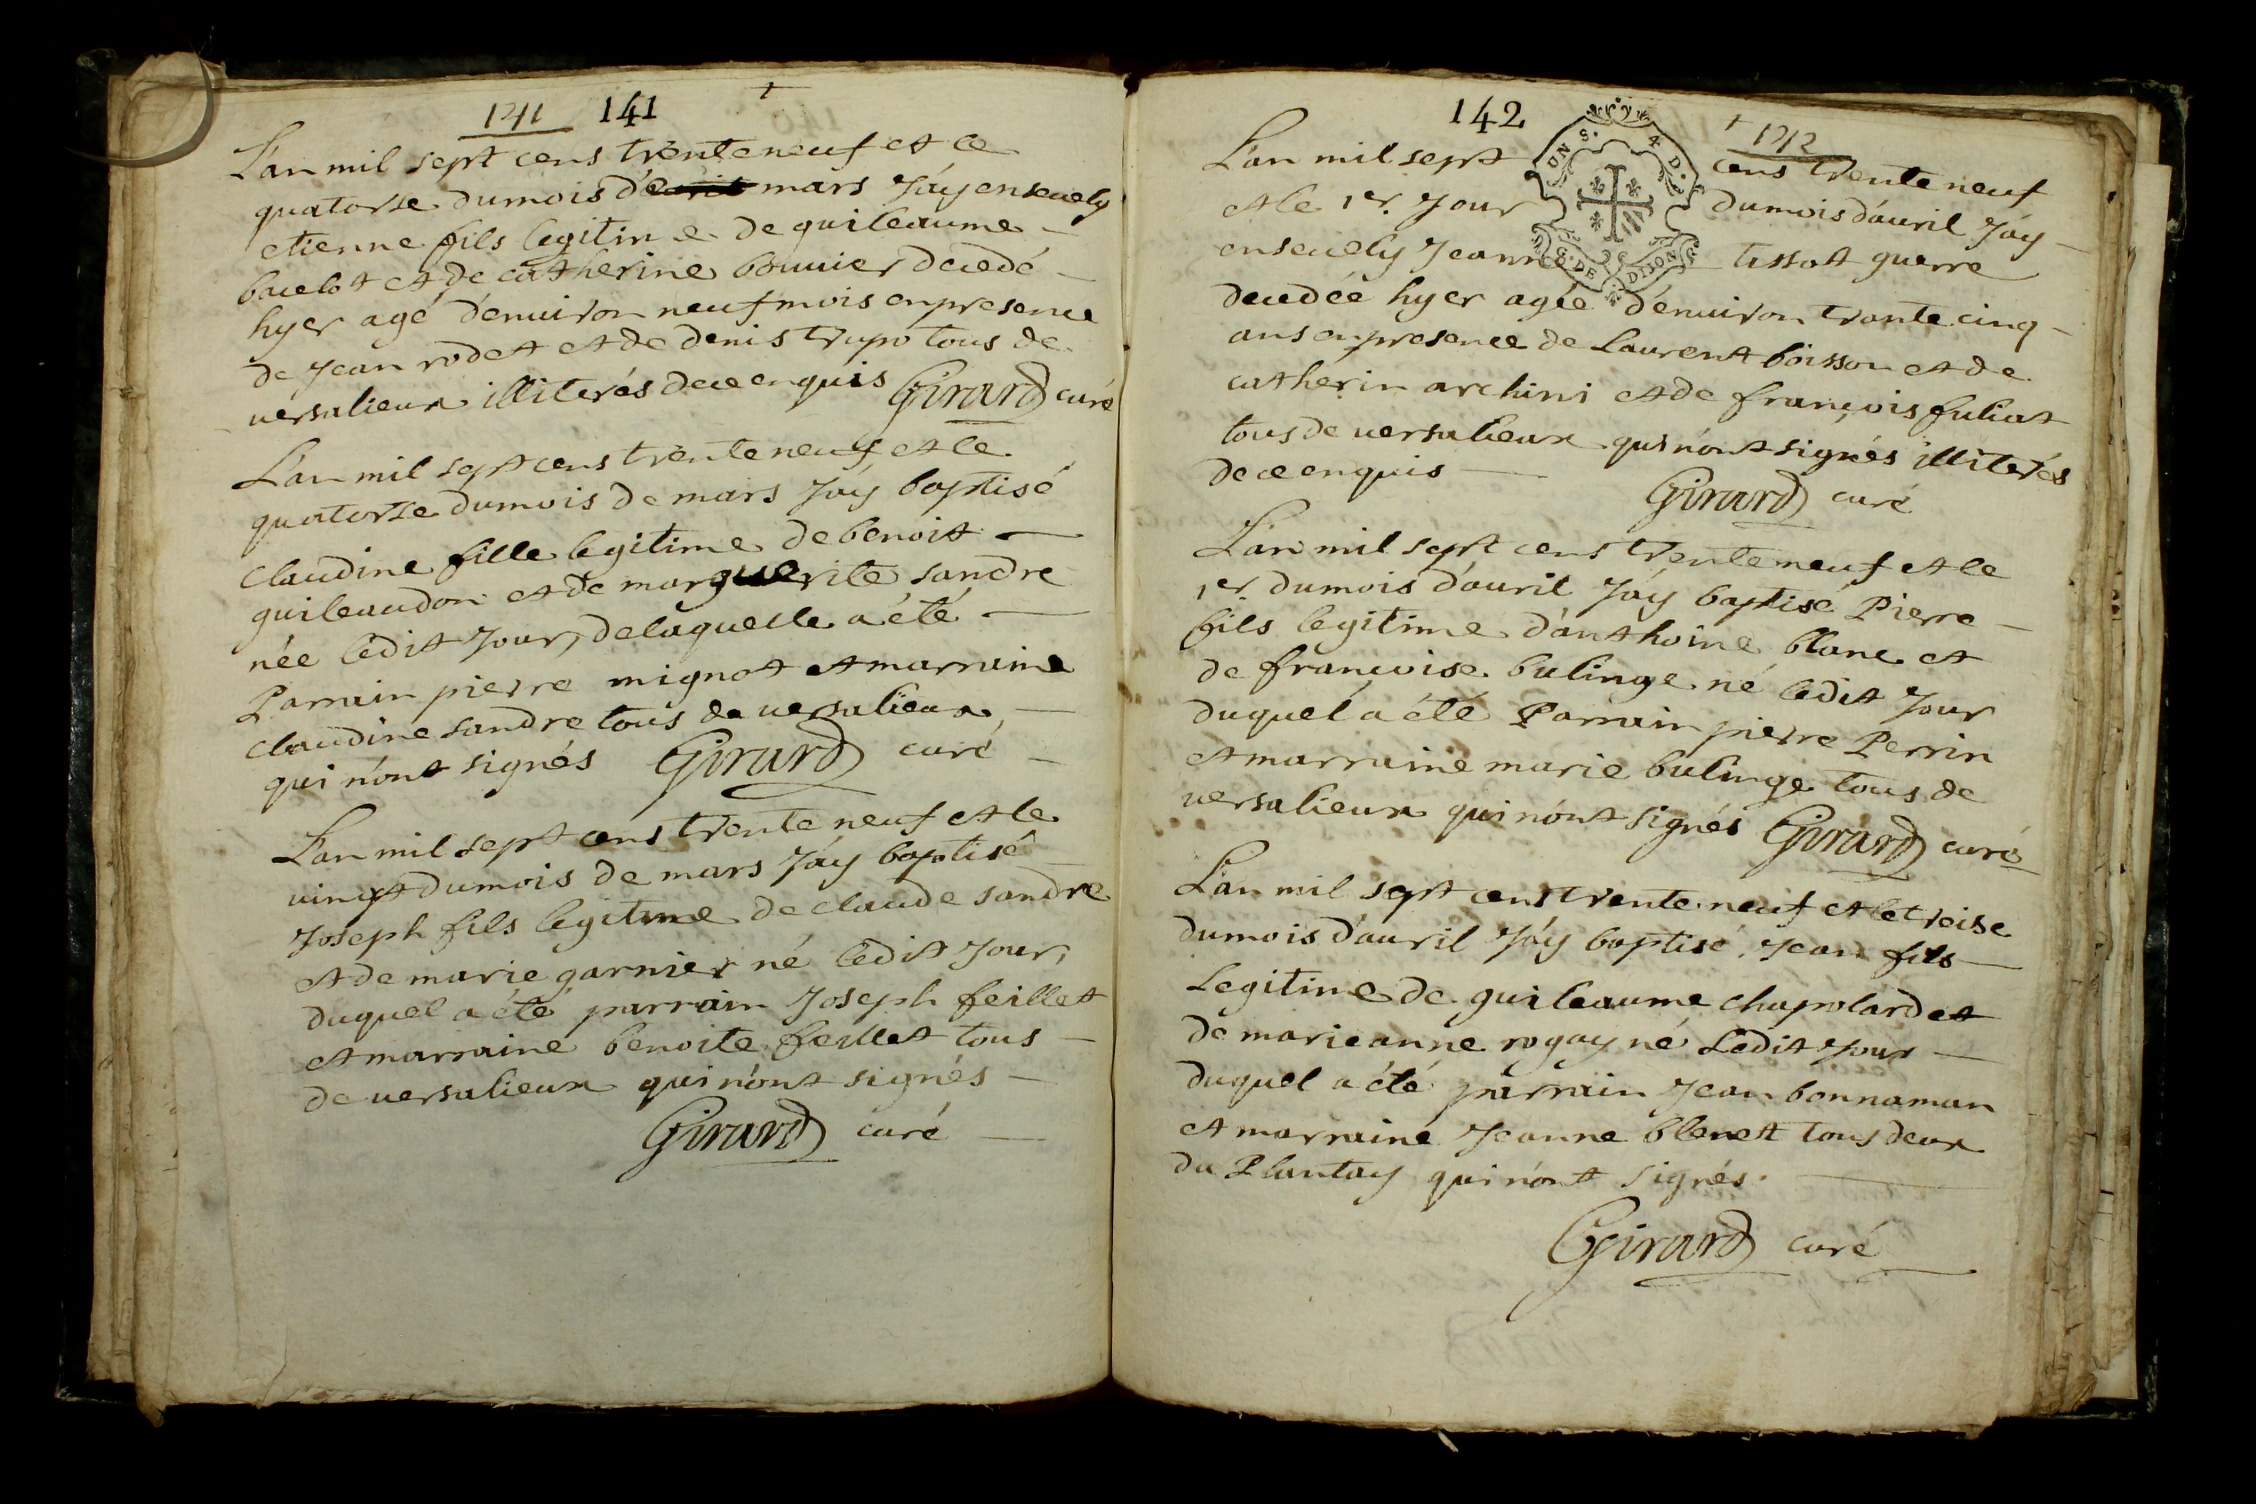 141 141
L'an mil sept cens trente neuf et le
quatorse du mois d'avril mars J'áy enseuely
etienne fils legitime de guileaume
bacelot et de catherine bouuier decedé
hyer agé d'enuiron neuf mois en presence
de Jean rodet et de denis trupo tous de
uersalieux illiterés de ce enquis Girard curé
L'an mil sept cens trente neuf et le
quatorse du mois de mars J'ay baptisé
claudine fille legitime de benoit
guileaudon et de marguerite sandre
née ledit Jour, de laquelle a été
Parrain pierre mignot et marraine
claudine sandre tous de uersalieux,
qui n'ont signés Girard curé
L'an mil sept cens trente neuf et le
uingt du mois de mars J'áy baptisé
Joseph fils legitime de claude sandre
et de marie garnier né ledit Jour,
duquel a été parrain Joseph feillet
et marraine benoite feillet tous
de uersalieux qui n'ont signés
Girard curé
142 142
L'an mil sept cens trente neuf
et le 1er. Jour du mois d'auril J'áy
enseuely Jeanne tissot guerre
decedée hyer agée d'enuiron trante cinq
ans en presence de Laurent boisson et de
catherin archini et de françois fuliat
tous de uersalieux qui n'ont signés illiterés
de ce enquis Girard curé
L'an mil sept cens trente neuf et le
1er. du mois d'auril J'áy baptisé Pierre
fils legitime d'anthoine blanc et
de françoise bulinge né ledit Jour
duquel a été Parrain pierre Perrin
et marraine marie bulinge tous de
uersalieux qui n'ont signés Girard curé
L'an mil sept cens trente neuf et le treise
du mois d'auril J'áy baptisé Jean fils
Legitime de guileaume chapolard et
de marieanne rogay né Ledit Jour
duquel a été parrain Jean bonnaman
et marraine Jeanne blenet tous deux
du Plantay qui n'ont signés.
Girard curé
ON S. 4 D.
S. DE DIJON